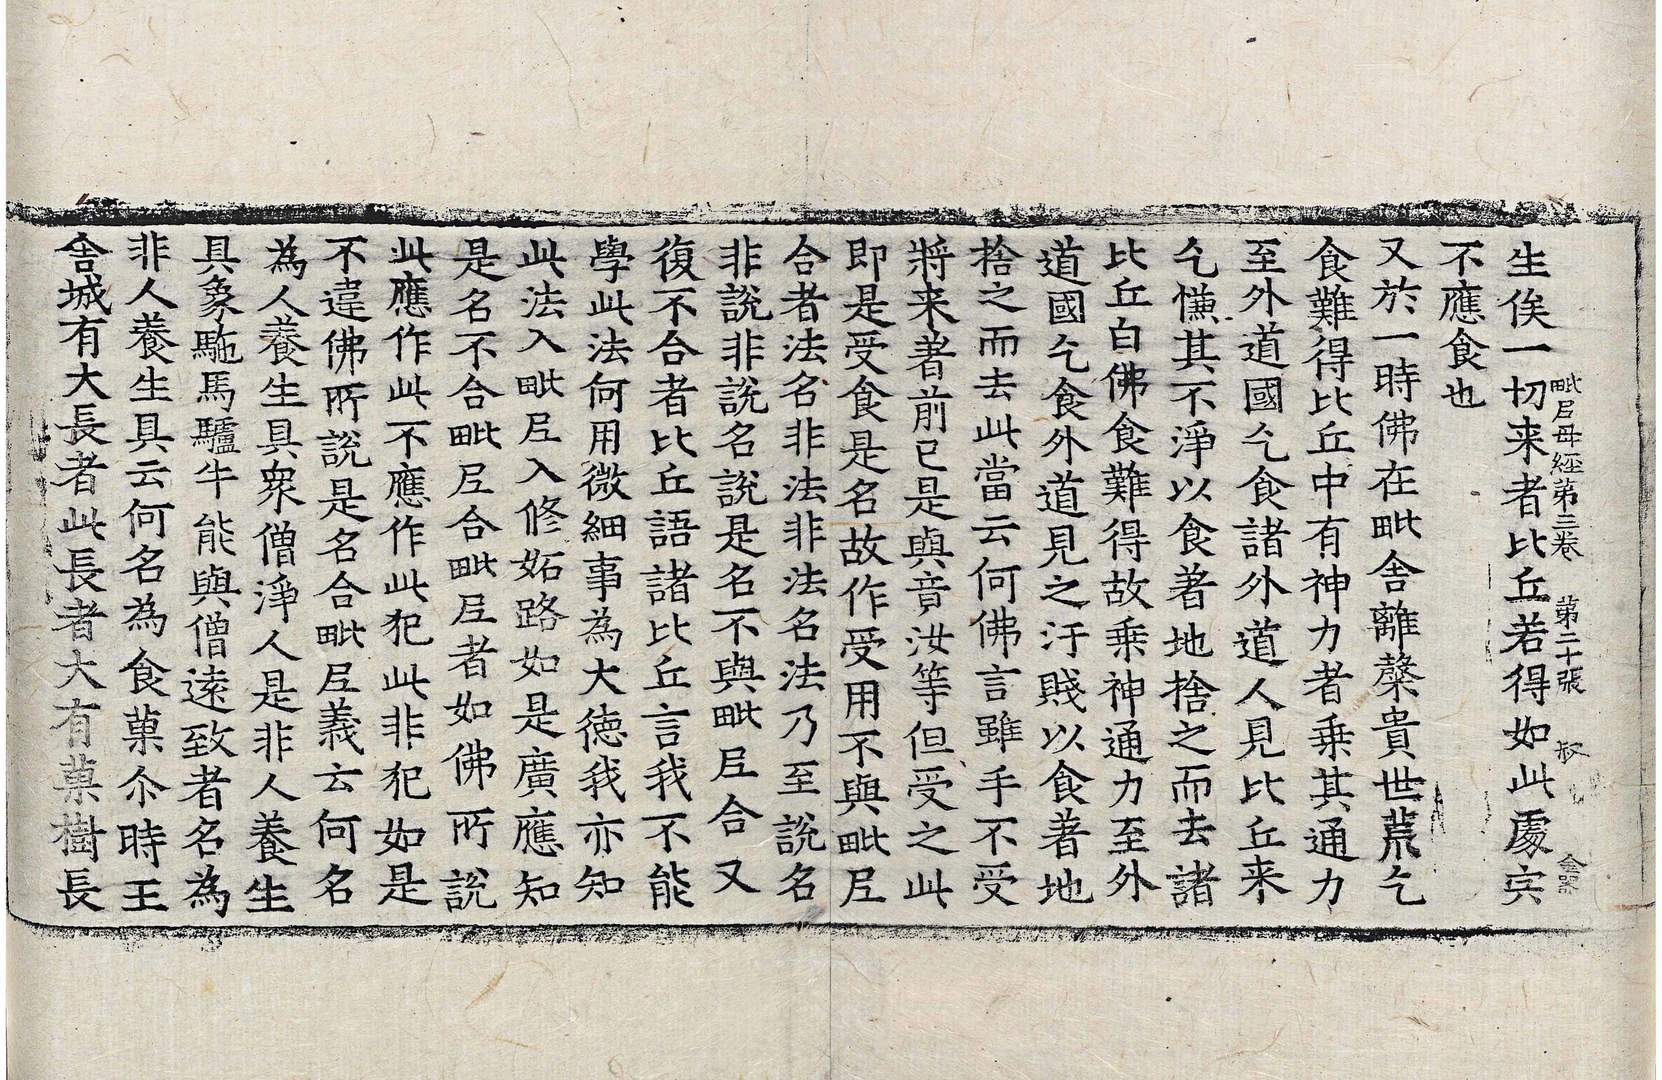 毗𡰱母經第三卷　第二十張　叔
生俟一切来者比丘若得如此處宍
不應食也
又於一時佛在毗舍離槃貴世荒乞
食難得比丘中有神力者乗其通力
至外道國乞食諸外道人見比丘来
乞慊其不淨以食著地捨之而去諸
比丘白佛食難得故乗神通力至外
道國乞食外道見之汙賤以食著地
捨之而去此當云何佛言雖手不受
將来著前已是與竟汝等但受之此
即是受食是名故作受用不與毗𡰱
合者法名非法非法名法乃至說名
非說非說名說是名不與毗𡰱合又
復不合者比丘語諸比丘言我不能
學此法何用微細事為大德我亦知
此法入毗𡰱入修妬路如是廣應知
是名不合毗𡰱合毗𡰱者如佛所說
此應作此不應作此犯此非犯如是
不違佛所說是名合毗𡰱義云何名
為人養生具衆僧淨人是非人養生
具象駞馬驢牛能與僧遠致者名為
非人養生具云何名為食菓尒時王
舍城有大長者此長者大有菓樹長